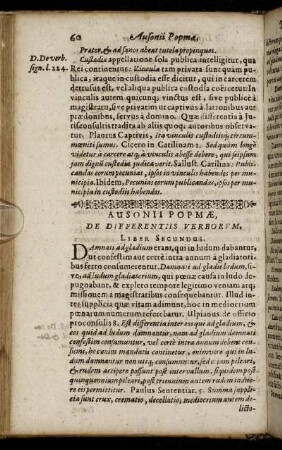 60 Ausonii Popmæ
Prætor, & ad sanos abeat tutela propinquos.
D. De verb. sign. l. 224.
Custodia appellatione sola publica intelligitur, qua
Rei continentur. Vincula tam privata sunt quàm pu-
blica, itaque in custodia esse dicitur, qui in carcerem
detrusus est, vel aliqua publica custodia coërcetur: In
vinculis autem quicunq; vinctus est, sive publicè à
magistratu, sive privatim ut captivus à latronibus aut
prædonibus, servus à domino. Quæ differentia à Ju-
risconsultis tradita ab aliis quoq; autoribus observa-
tur. Plautus Captivis,
Cicero in Catilinam 2.
videtur à carcere atq; à vinculis abesse debere, qui seipsum
jam dignū custodiā judicaverit. Sallust. Catilina: Publi-
candas eorum pecunias, ipsos in vinculis habendos per mu-
nicipia. Ibidem, Pecunias eorum publicandas, ipsos per mu-
nicipia in custodiis habendos.
AUSONII POPMÆ,
DE DIFFERENTIIS VERBORVM,
LIBER SECUNDUS.
Damnati ad gladium erant, qui in ludum dabantur,
ut confestim aut certè intra annum à gladiatori-
bus ferro consumerentur. Damnati ad gladis ludum, si-
ve, ad ludum gladiatorium, qui pœnæ causa in ludo de-
pugnabant, & expleto tempore legitimo veniam atq;
missionem à magistratibus consequebantur. Illud in-
ter supplicia quæ vitam adimunt, hoc in mediocrium
pœnarum numerum refertur. Ulpianus de officio
proconsulis 8. Est differentia inter eos qui ad gladium, & in-
ter eos qui ad ludum damnantur, nam ad gladium damnati
confestim consumuntur, vel certè intra annum debent con-
sumi, hoc enim mandatis continetur, enimvero qui in lu-
dum damnantur non utiq; consumuntur, sed etiam pileari,
& rudem accipere possunt post intervallum, siquidem post
quinquennium pileari, post triennium autem rudem induere
eis permittitur. Paulus Sententiar. 5. Summa suppli-
cia sunt crux, crematio, decollatio; mediocrium autem de-
licto-